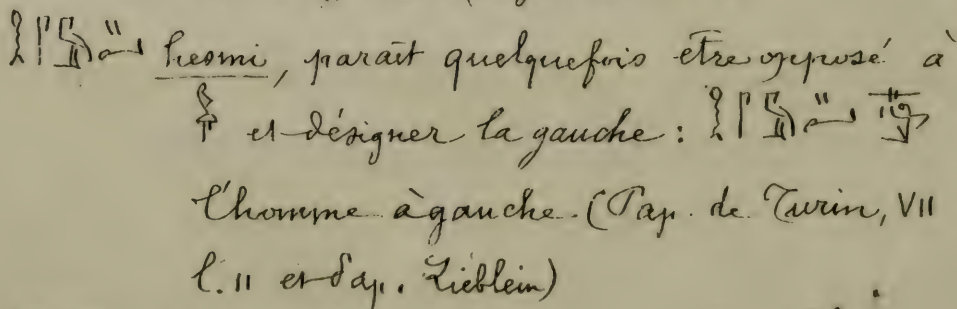 hesmi, parait quelquefois etre opposé à
et désigner la gauche :
l'homme à gauche. (Pap. de Turin, VII
l. 11 et d'ap. Lieblein)